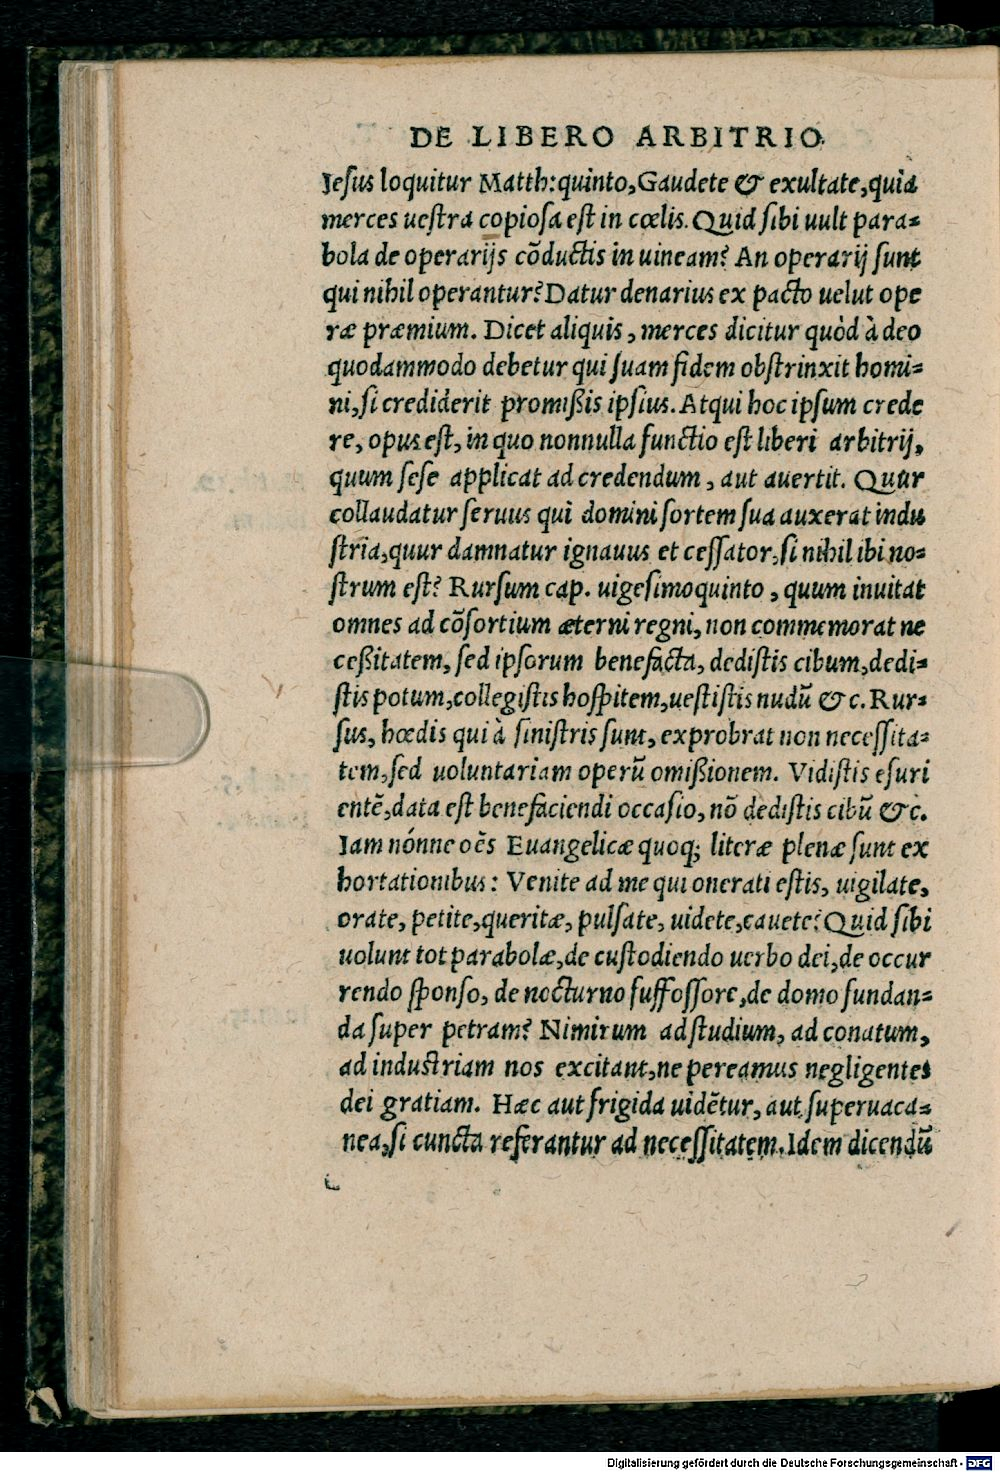 DE LIBERO ARBITRIO.
Jesus loquitur Matth: quinto, Gaudete & exultate, quia
merces uestra copiosa est in cœlis. Quid sibi uult para-
bola de operarijs cõductis in uineam? An operarij sunt
qui nihil operantur? Datur denarius ex pacto uelut ope
ræ præmium. Dicet aliquis, merces dicitur quòd à deo
quodammodo debetur qui suam fidem obstrinxit homi-
ni, si crediderit promißis ipsius. Atqui hoc ipsum crede
re, opus est, in quo nonnulla functio est liberi arbitrij,
quum sese applicat ad credendum, aut auertit. Quur
collaudatur seruus qui domini sortem sua auxerat indu
stria, quur damnatur ignauus et cessator, si nihil ibi no-
strum est? Rursum cap. uigesimoquinto, quum inuitat
omnes ad cõsortium æterni regni, non commemorat ne
ceßitatem, sed ipsorum benefacta, dedistis cibum, dedi-
stis potum, collegistis hospitem, uestistis nudũ & c. Rur-
sus, hœdis qui à sinistris sunt, exprobrat non necessita-
tem, sed uoluntariam operũ omißionem. Vidistis esuri
entẽ, data est benefaciendi occasio, nõ dedistis cibũ & c.
Iam nónne oẽs Euangelicæ quoq; literæ plenæ sunt ex
hortationibus: Venite ad me qui onerati estis, uigilate,
orate, petite, queritæ, pulsate, uidete, cauete? Quid sibi
uolunt tot parabolæ, de custodiendo uerbo dei, de occur
rendo sponso, de nocturno suffossore, de domo fundan-
da super petram? Nimirum ad studium, ad conatum,
ad industriam nos excitant, ne pereamus negligentes
dei gratiam. Hæc aut frigida uidẽtur, aut superuaca-
nea, si cuncta referantur ad necessitatem. Idem dicendũ
Digitalisierung gefördert durch die Deutsche Forschungsgemeinschaft - DFG